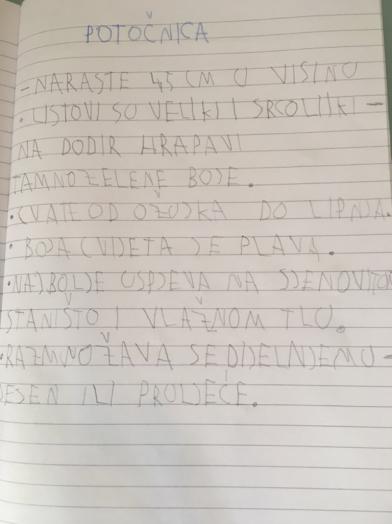 POTOČNICA
- NARASTE 45 CM U VISINU
• LISTOVI SU VELIKI I SRCOLIKI -
NA DODIR HRAPAVI
TAMNOZELENE BOJE.
• CVATE OD OŽUJKA DO LIPNJA.
• BOJA CVIJETA JE PLAVA.
• NAJBOLJE USPJEVA NA SJENOVITOM
STANIŠTO I VLAŽNOM TLU.
• RAZMNOŽAVA SE DIJELNJEM U -
JESEN ILI PROLJEĆE.